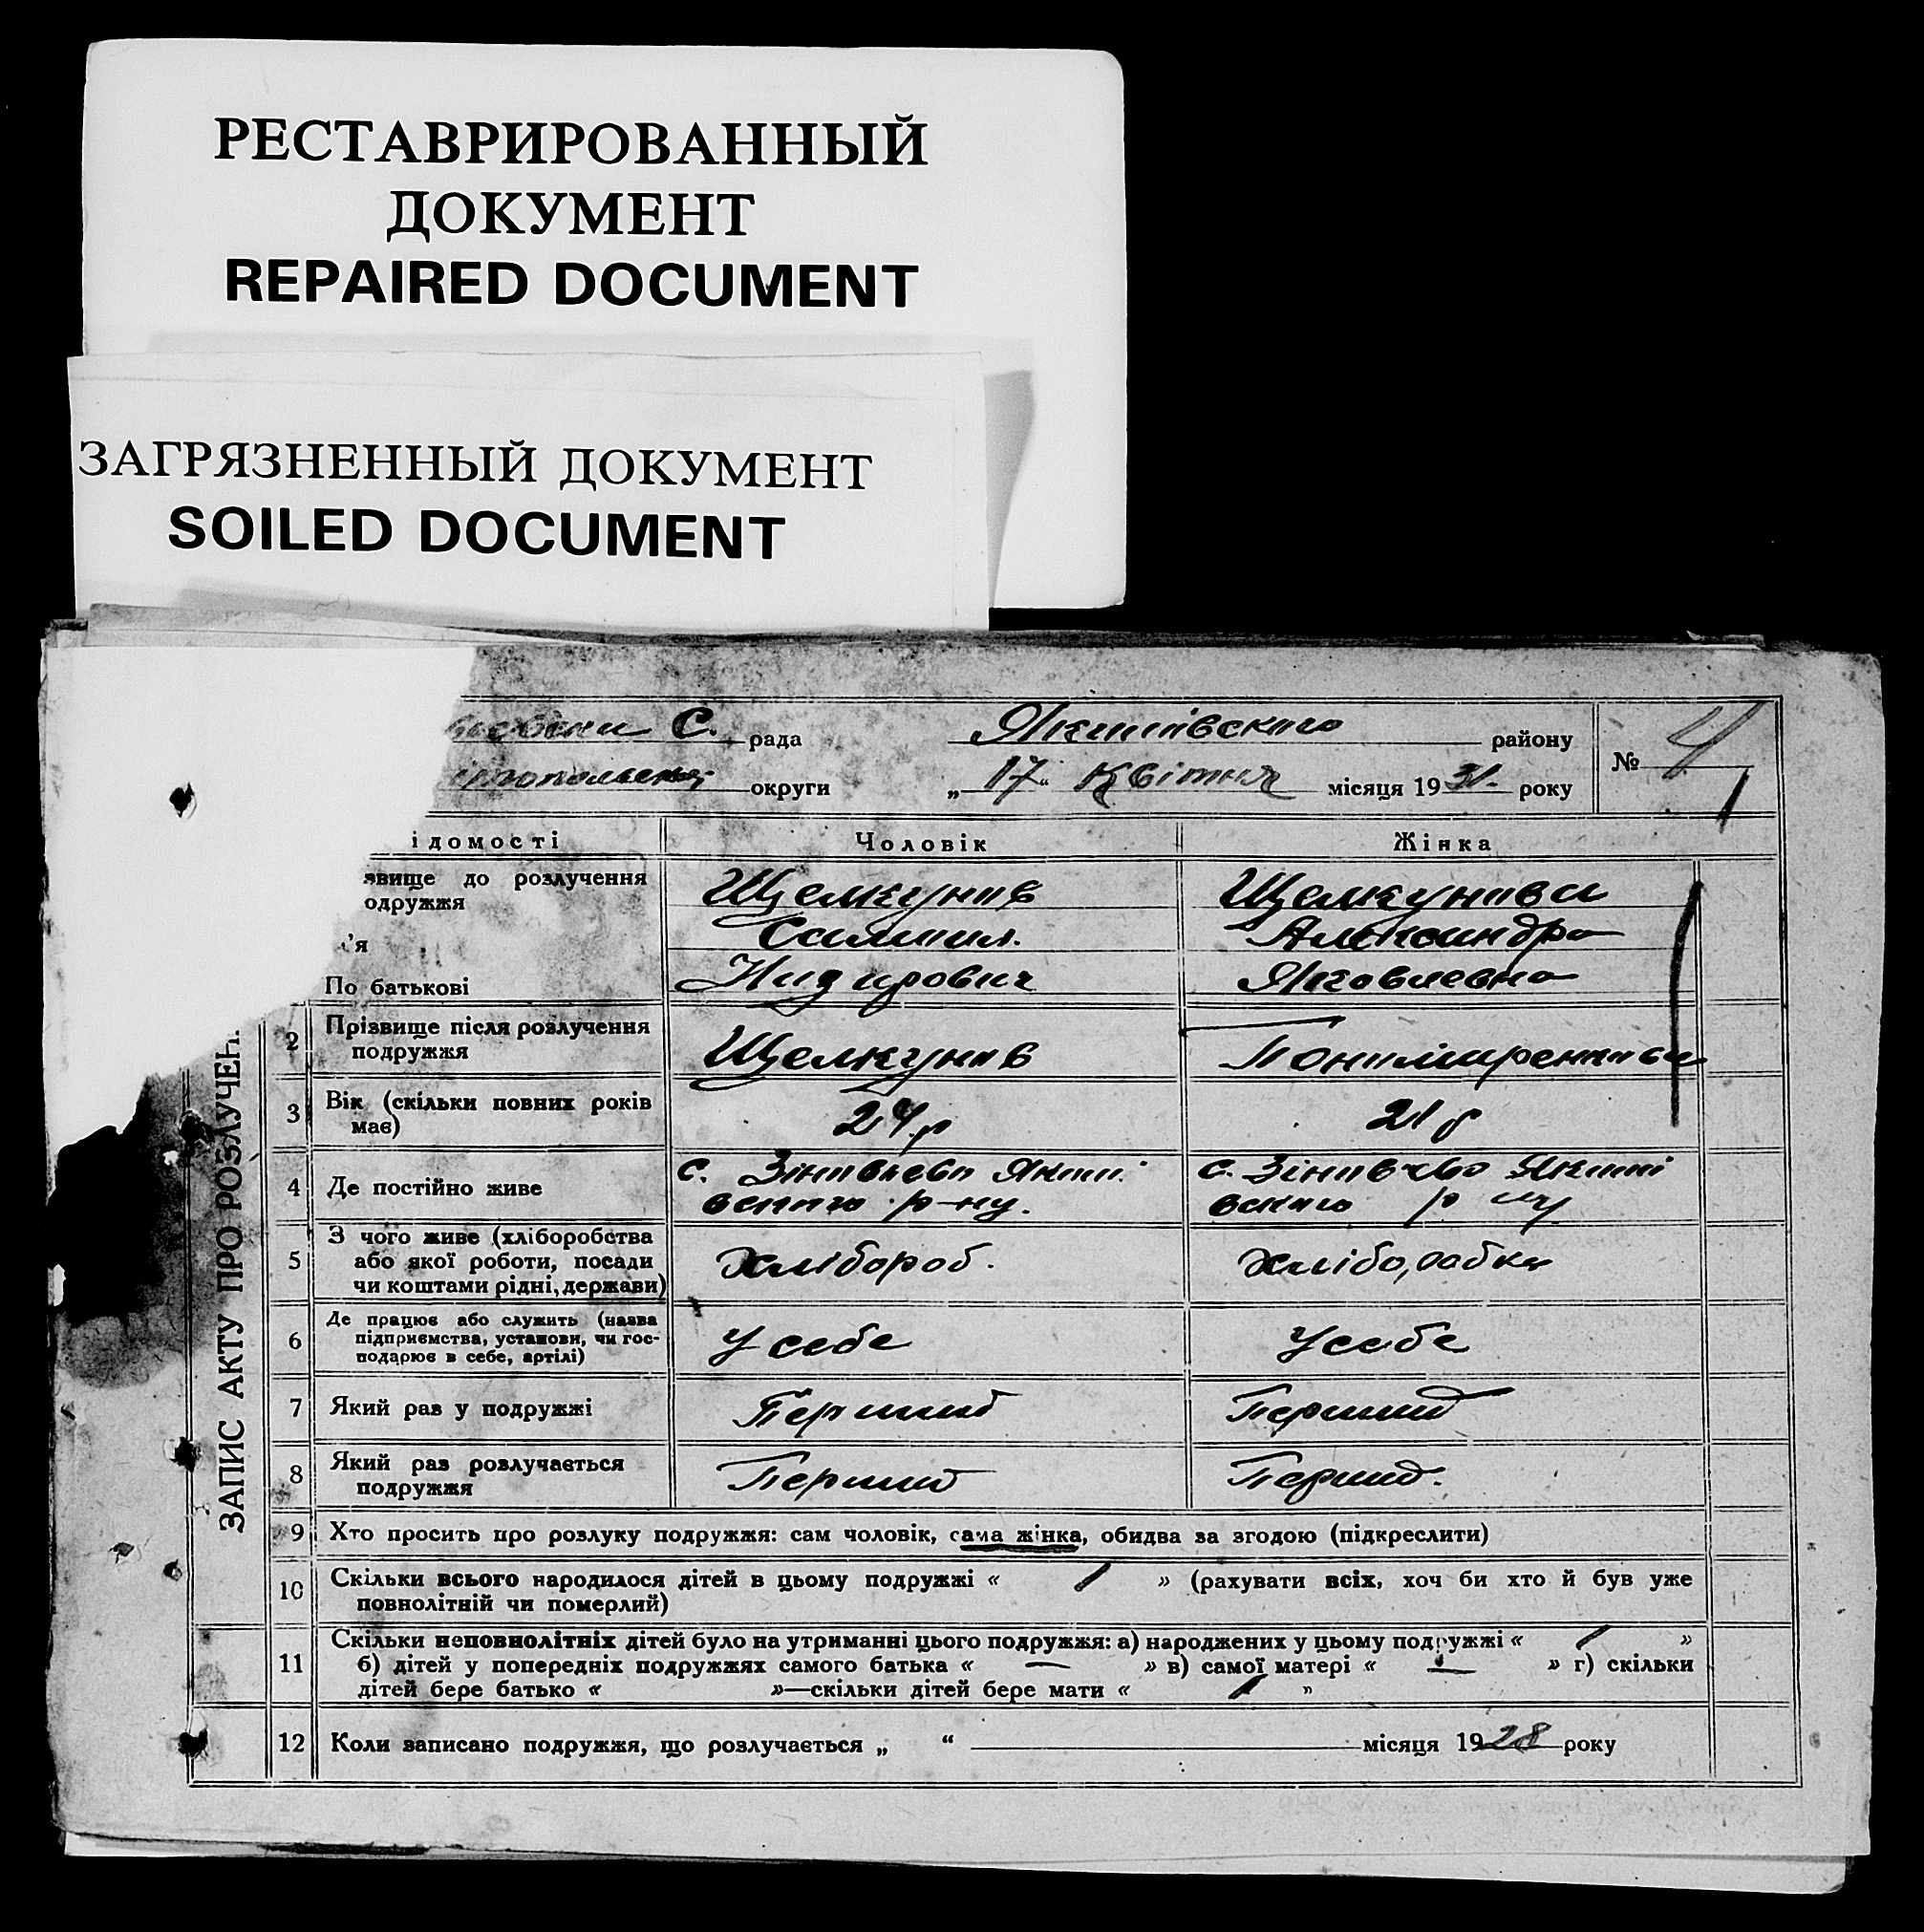 РЕСТАВРИРОВАННЫЙ
ДОКУМЕНТ
REPAIRED DOCUMENT
ЗАГРЯЗНЕННЫЙ ДОКУМЕНТ
SOILED DOCUMENT
С. рада Якимівского району № 4
округи „17“ Квітня місяця 1931. року
ідомості Чоловік Жінка
звище до розлучення Щелкунів Щелкунова
одружжя
'я Самоил. Александра
По батькові Яковлевна
2 Прізвище після розлучення Щелкунів
подружжя
3 Вік (скільки повних років 24 р 21 р
має)
4 Де постійно живе с. Якимі с. Якимі
вского р-ну. вского р ну
5 З чого живе (хліборобства
або якої роботи, посади Хлібороб. Хліборобка
чи коштами рідні, держави)
6 Де працює або служить (назва
підприємства, установи, чи гос- У себе У себе
подарює в себе, артілі)
7 Який раз у подружжі Перший Перший
8 Який раз розлучається Перший Перший.
подружжя
9 Хто просить про розлуку подружжя: сам чоловік, сама жінка, обидва за згодою (підкреслити)
10 Скільки всього народилося дітей в цьому подружжі « 1 » (рахувати всіх, хоч би хто й був уже
повнолітній чи померлий)
11 Скільки неповнолітніх дітей було на утриманні цього подружжя: а) народжених у цьому подружжі « 1 »
б) дітей у попередніх подружжях самого батька « — » в) самої матері « — » г) скільки
дітей бере батько « »—скільки дітей бере мати « 1 »
12 Коли записано подружжя, що розлучається „ “ місяця 1928 року
ЗАПИС АКТУ ПРО РОЗЛУЧЕН